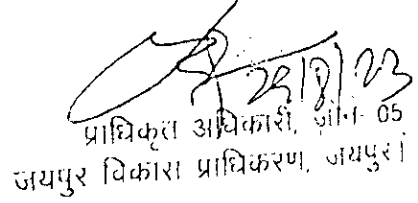 29/8/23
प्राधिकृत अधिकारी, ज़ोन- 05
जयपुर विकास प्राधिकरण, जयपुर।